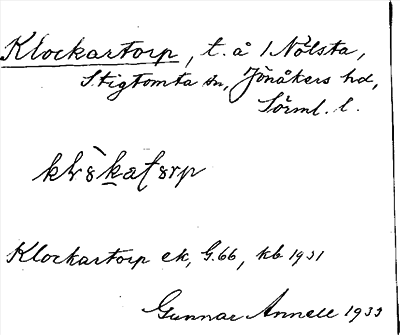 Klockartorp, t. å 1 Nölsta,
Stigtomta sn, Jönåkers hd,
Sörml. l.
Klockartorp ek, G.66, kb 1931
Gunnar Annell 1933